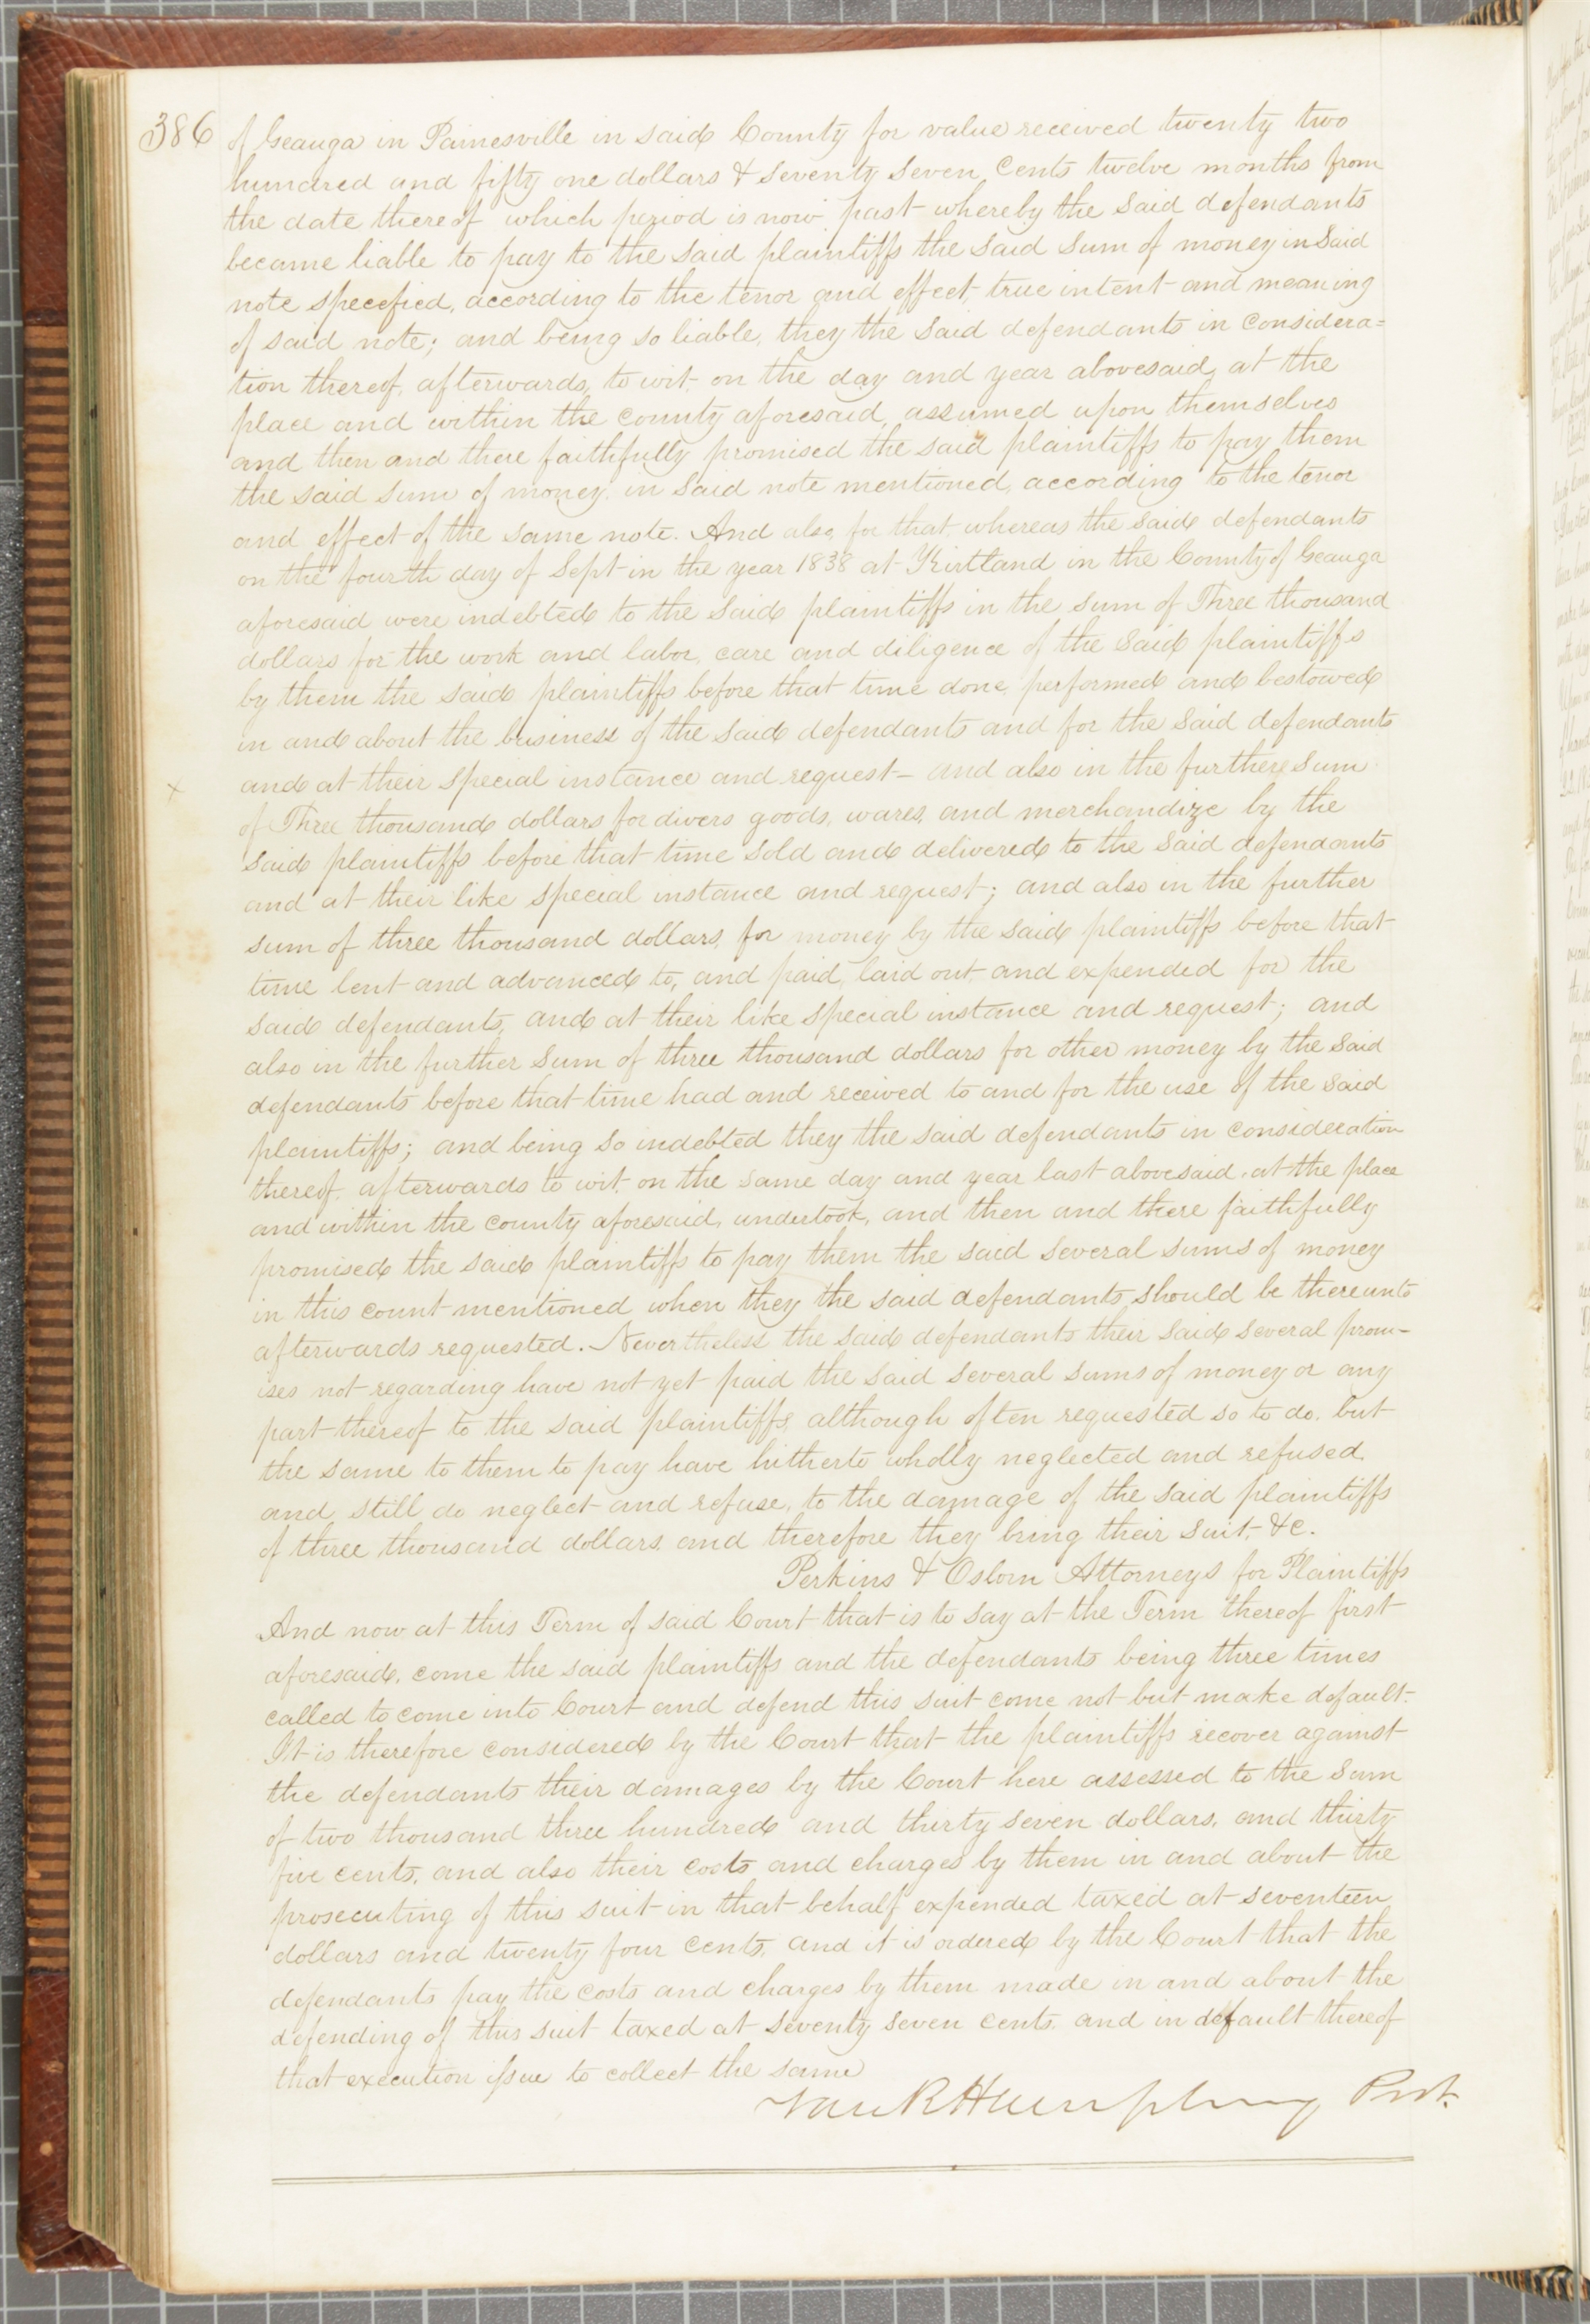 386
of Geauga in Painesville in said County for value received twenty two
hundred and fifty one dollars & seventy seven Cents twelve months from
the date thereof which period is now past whereby the said defendants
became liable to pay to the said plaintiffs the said sum of money in said
note specefied, according to the tenor and effect, true intent and meaning
of said note; and being so liable, they the said defendants in considera=
tion thereof, afterwards, to wit, on the day and year abovesaid, at the
place and within the county aforesaid, assumed upon themselves
and then and there faithfully promised the said plaintiffs to pay them
the said sum of money, in said note mentioned, according to the tenor
and effect of the same note. And also, for that whereas the said defendants
on the fourth day of Sept in the year 1838 at Kirtland in the County of Geauga
aforesaid were indebted to the said plaintiffs in the sum of Three thousand
dollars for the work and labor, care and diligence of the said plaintiffs
by them the said plaintiffs before that time done, performed and bestowed
in and about the business of the said defendants and for the said defendants
x and at their special instance and request— and also in the further sum
of Three thousand dollars for divers goods, wares, and merchandize by the
said plaintiffs before that time sold and delivered to the said defendants
and at their like special instance and request; and also in the further
sum of three thousand dollars, for money by the said plaintiffs before that
time lent and advanced to, and paid, laid out and expended for the
said defendants, and at their like special instance and request; and
also in the further sum of three thousand dollars for other money by the said
defendants before that time had and received to and for the use of the said
plaintiffs; and being so indebted they the said defendants in consideration
thereof, afterwards to wit, on the same day and year last abovesaid, at the place
and within the county aforesaid, undertook, and then and there faithfully
promised the said plaintiffs to pay them the said several sums of money
in this count mentioned when they the said defendants should be thereunto
afterwards requested. Nevertheless the said defendants their said several prom-
ises not regarding have not yet paid the said several sums of money or any
part thereof to the said plaintiffs, although often requested so to do, but
the same to them to pay have hitherto wholly neglected and refused,
and still do neglect and refuse, to the damage of the said plaintiffs
of three thousand dollars, and therefore they bring their suit, &c.
Perkins & Osborn Attorneys for Plaintiffs
And now at this Term of said Court that is to say at the Term thereof first
aforesaid, come the said plaintiffs and the defendants being three times
called to come into Court and defend this suit come not but make default.
It is therefore considered by the Court that the plaintiffs recover against
the defendants their damages by the Court here assessed to the sum
of two thousand three hundred and thirty seven dollars, and thirty
five cents, and also their costs and charges by them in and about the
prosecuting of this suit in that behalf expended taxed at seventeen
dollars and twenty four cents, and it is ordered by the Court that the
defendants pay the costs and charges by them made in and about the
defending of this suit taxed at seventy seven cents, and in default thereof
that execution issue to collect the same
Van R Humphrey Prst.